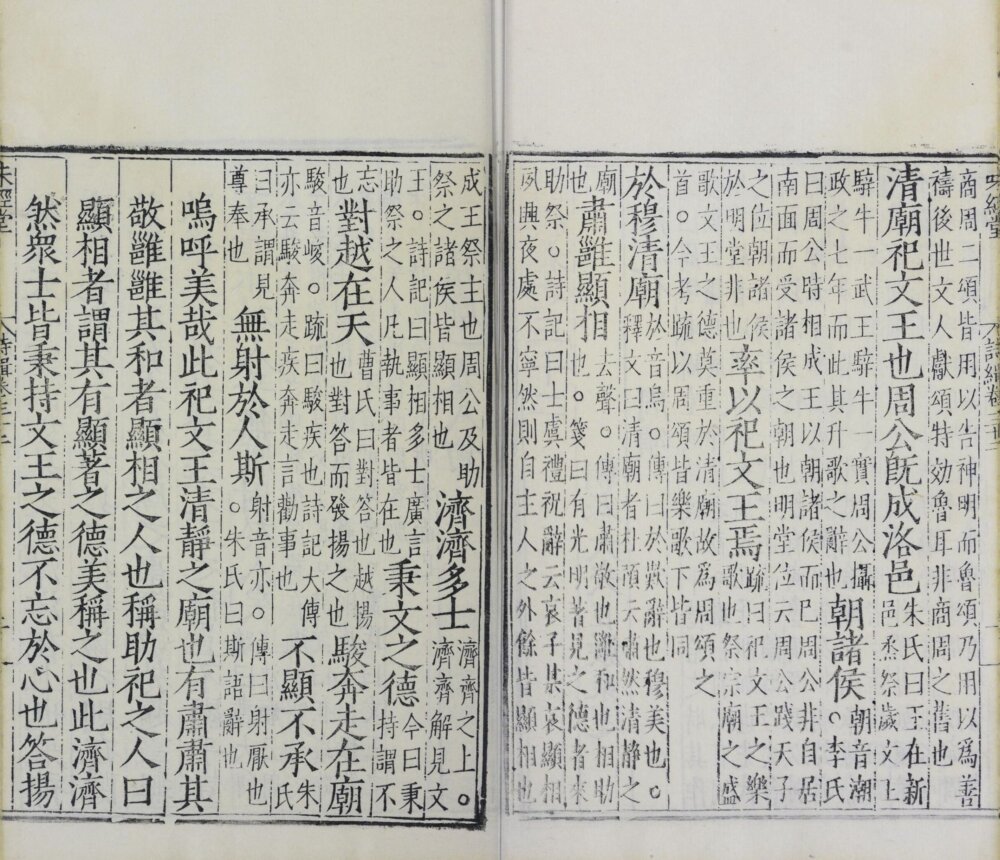 商周二頌皆用以告神明而魯頌乃用以為善
禱後世文人獻頌特効魯耳非商周之舊也
清廟祀文王也周公既成洛邑
朱氏曰王在新
邑烝祭歲文王
騂牛一武王騂牛一實周公攝
政之七年而此其升歌之辭也
朝諸侯
朝音潮
。李氏
曰周公時相成王以朝諸侯而已周公非自居
南面而受諸侯之朝也明堂位云周公踐天子
之位朝諸侯
於明堂非也
率以祀文王焉
疏曰祀文王之樂
歌也祭宗廟之盛
歌文王之德莫重於清廟故為周頌之
首。今考疏以周頌皆樂歌下皆同
於穆清廟
於音烏。傳曰於歎辭也穆美也。
釋文曰清廟者杜預云肅然清靜之
廟
也
肅雝顯相
去聲。傳曰肅敬也雝和也相助
也。箋曰有光明著見之德者來
助祭。詩記曰士虞禮祝辭云哀子某哀顯相
夙興夜處不寧然則自主人之外餘皆顯相也
成王祭主也周公及助
祭之諸侯皆顯相也
濟濟多士
濟濟之上。
濟濟解見文
王。詩記曰顯相多士廣言
助祭之人凡執事者皆在也
秉文之德
今曰秉
持謂不
忘
也
對越在天
曹氏曰對答也越揚
也對答而發揚之也
駿奔走在廟
駿音峻。疏曰駿疾也詩記大傳
亦云駿奔走疾奔走言勸事也
不顯不承
朱
氏
曰承謂見
尊奉也
無射於人斯
射音亦。傳曰射厭也
。朱氏曰斯語辭也
嗚呼美哉此祀文王清靜之廟也有肅肅其
敬雝雝其和者顯相之人也稱助祀之人曰
顯相者謂其有顯著之德美稱之也此濟濟
然衆士皆秉持文王之德不忘於心也答揚